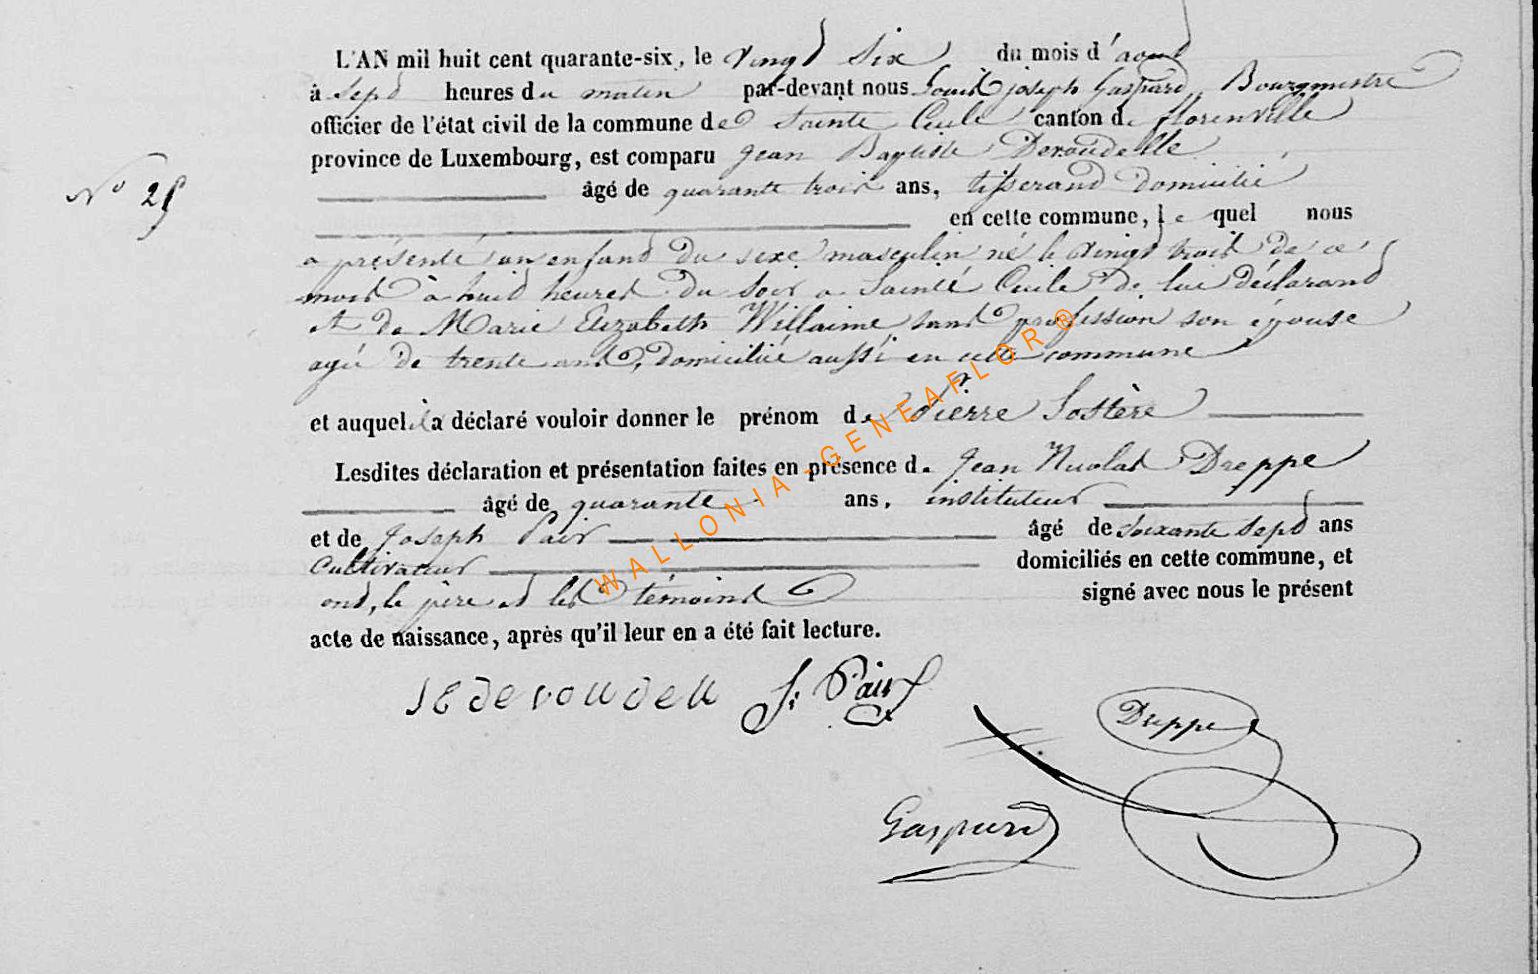 L'AN mil huit cent quarante-six, le vingt Six du mois d'août
à Sept heures du matin par-devant nous Louis joseph Gaspard Bourgmestre
officier de l'état civil de la commune de Sainte Cécile canton de florenville
province de Luxembourg, est comparu jean Baptiste Devoudelle
N° 25
âgé de quarante trois ans, tisserand domicilié
en cette commune, le quel nous
a présenté un enfand du sexe masculin né le vingt trois de ce
mois à huid heures du soir a Sainte Cécile de lui déclarand
et de Marie Elizabeth Willaime sans profession son épouse
agée de trente ans, domiciliée aussi en cette commune
et auquel il a déclaré vouloir donner le prénom de Pierre Sostère
Lesdites déclaration et présentation faites en présence de jean Nicolas Dreppe
âgé de quarante ans, instituteur
et de Joseph Pair âgé de Soixante Sept ans
Cultivateur domiciliés en cette commune, et
ont, le père et les témoins signé avec nous le présent
acte de naissance, après qu'il leur en a été fait lecture.
J B devoudell J. Pair
Dreppe
Gaspard
WALLONIA-GENEAFLOR®